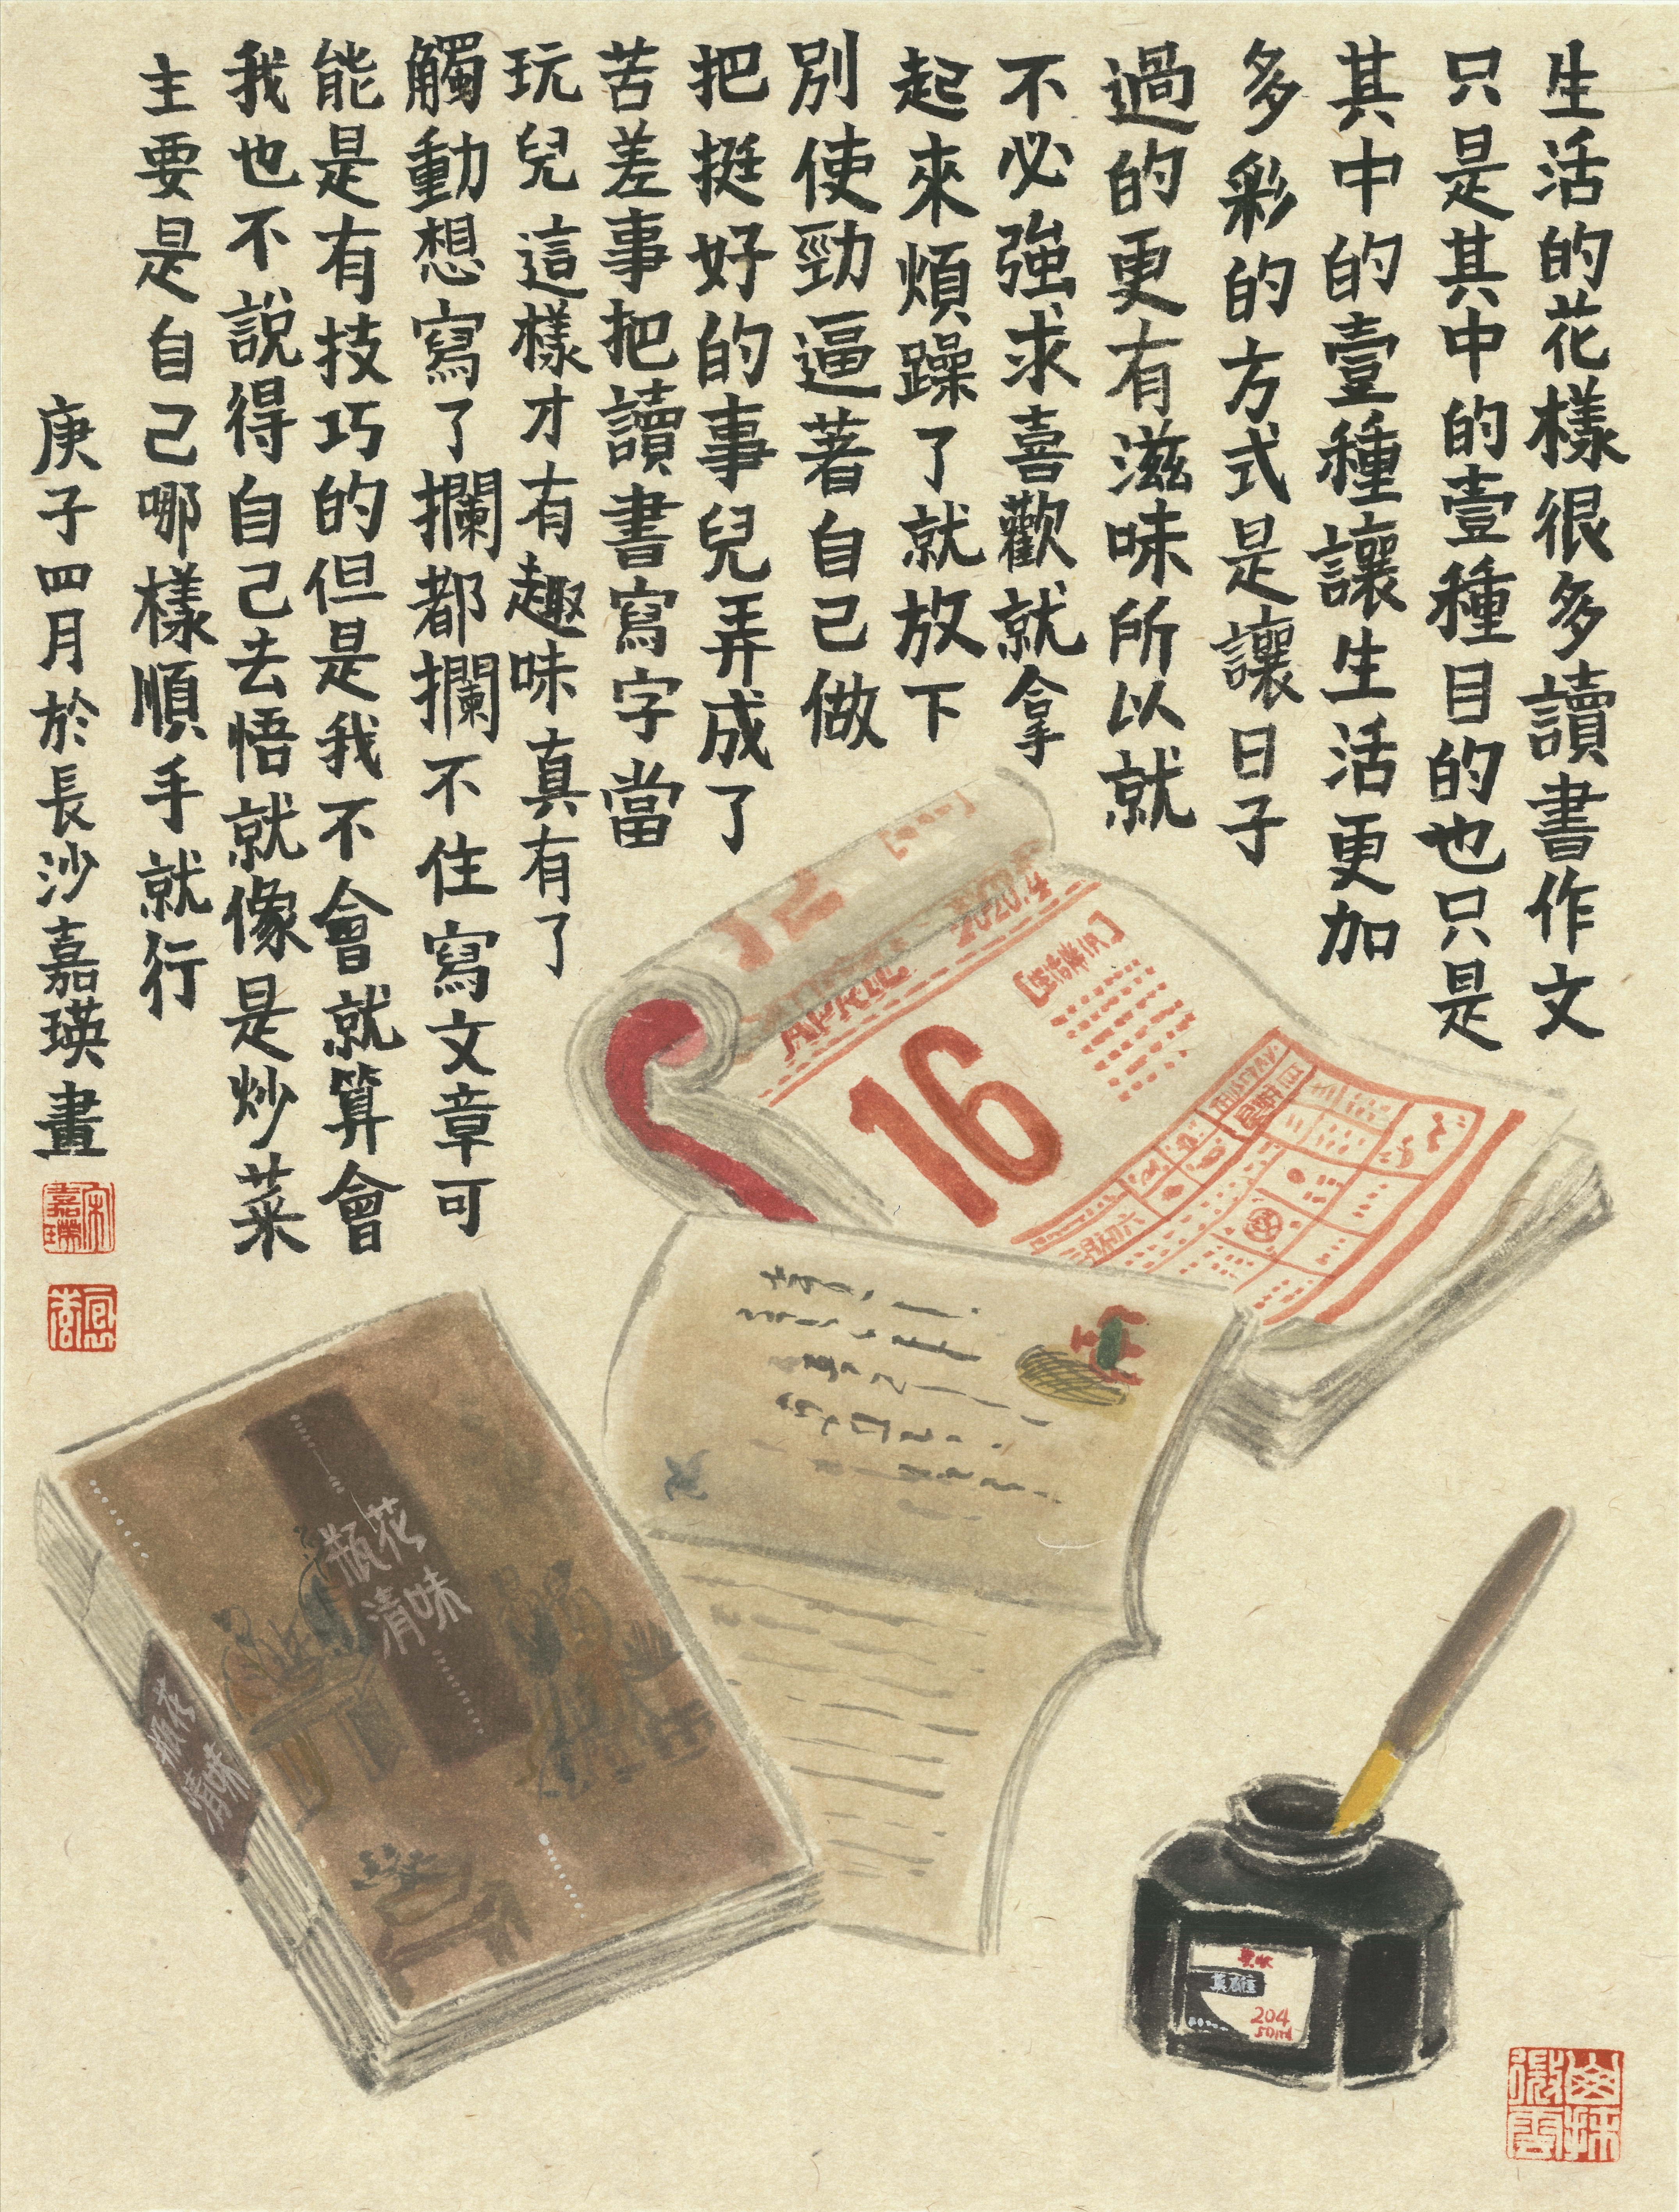 生活的花樣很多讀書作文
只是其中的壹種目的也只是
其中的壹種讓生活更加
多彩的方式是讓日子
過的更有滋味所以就
不必強求喜歡就拿
起來煩躁了就放下
別使勁逼著自己做
把挺好的事兒弄成了
苦差事把讀書寫字當
玩兒這樣才有趣味真有了
觸動想寫了攔都攔不住寫文章可
能是有技巧的但是我不會就算會
我也不說得自己去悟就像是炒菜
主要是自己哪樣順手就行
庚子四月於長沙嘉瑛畫
2020.4
APRIL
16
瓶花
清味
瓶花
清味
英雄
204
50ml